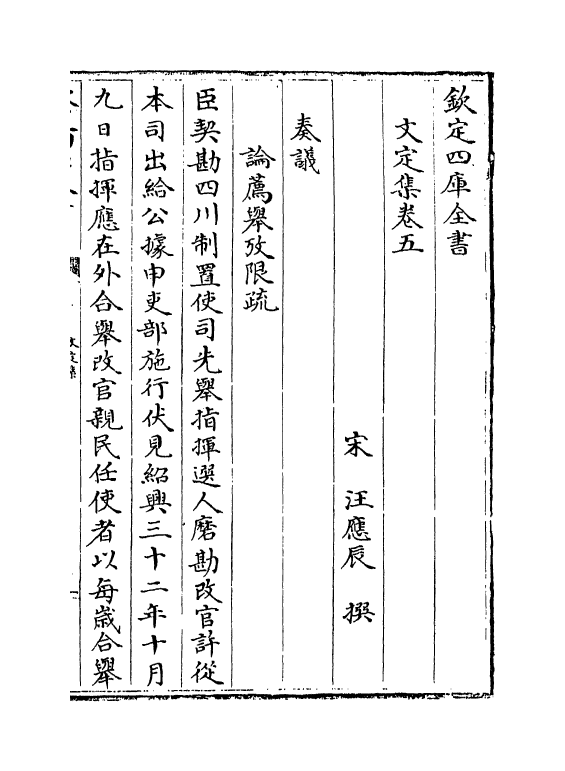 欽定四庫全書
文定集卷五
宋 汪應辰 撰
奏議
論薦舉攷限疏
臣契勘四川制置使司先舉指揮選人磨勘改官許從
本司出給公據申吏部施行伏見紹興三十二年十月
九日指揮應在外合舉改官親民任使者以每歲合舉
文定集